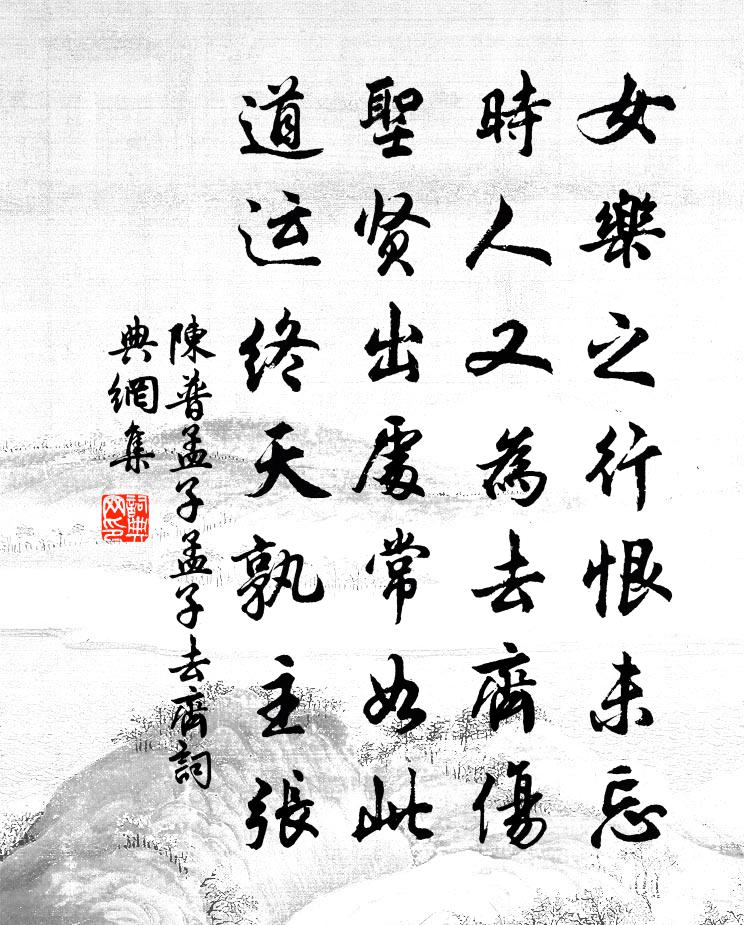 女樂之行恨未忘
時人又為去齊傷
聖贤出處常如此
道运终天孰主張
陳普孟子孟子去齊詞
典網集
詞典
网印